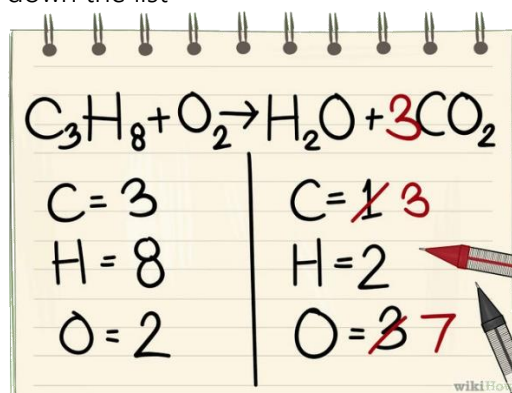 down the list
C₃H₈+O₂→H₂O+3CO₂
C=3
H=8
O=2
C=1 3
H=2
O=3 7